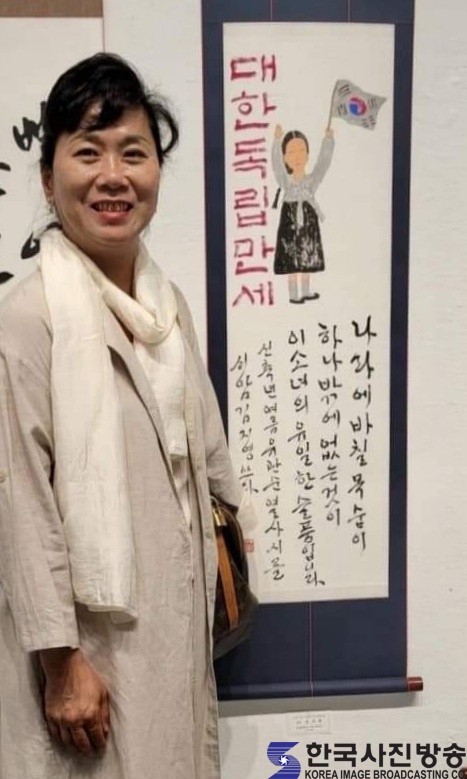 대한독립만세
나라에 바칠 목숨이
하나밖에 없는 것이
이 소녀의 유일한 슬픔입니다.
신축년 여름 유관순 열사 시를
김지영 쓰다
한국사진방송
KOREA IMAGE BROADCASTING CO